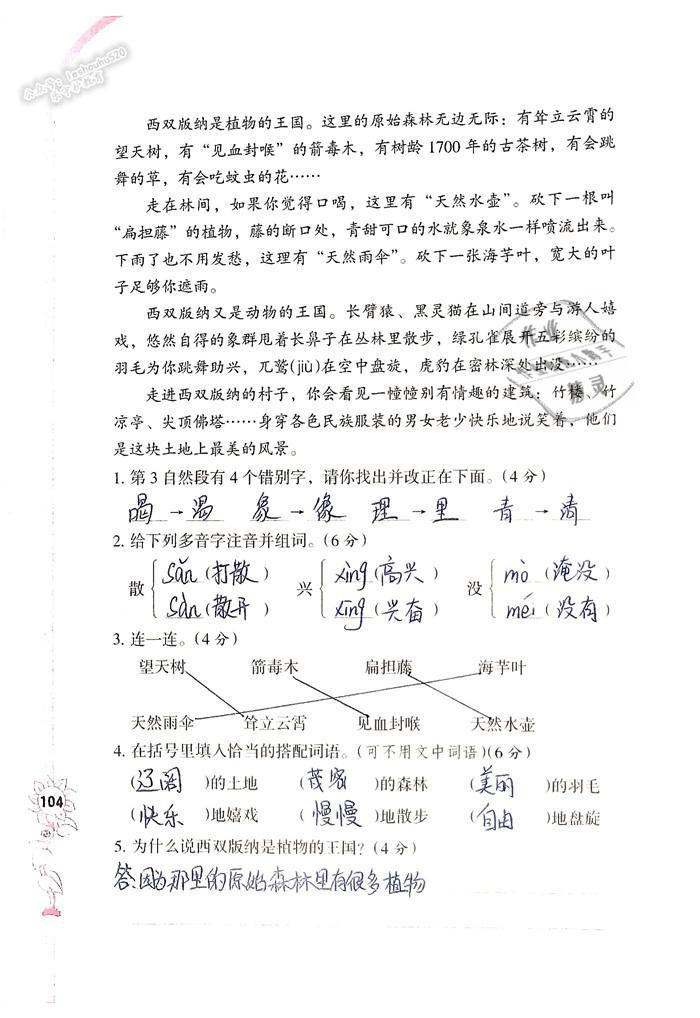 公众号：leshouhu520
乐守护教育
西双版纳是植物的王国。这里的原始森林无边无际：有耸立云霄的
望天树，有“见血封喉”的箭毒木，有树龄1700年的古茶树，有会跳
舞的草，有会吃蚊虫的花……
走在林间，如果你觉得口喝，这里有“天然水壶”。砍下一根叫
“扁担藤”的植物，藤的断口处，青甜可口的水就象泉水一样喷流出来。
下雨了也不用发愁，这理有“天然雨伞”。砍下一张海芋叶，宽大的叶
子足够你遮雨。
西双版纳又是动物的王国。长臂猿、黑灵猫在山间道旁与游人嬉
戏，悠然自得的象群甩着长鼻子在丛林里散步，绿孔雀展开五彩缤纷的
羽毛为你跳舞助兴，兀鹫(jiù)在空中盘旋，虎豹在密林深处出没……
走进西双版纳的村子，你会看见一幢幢别有情趣的建筑：竹楼、竹
凉亭、尖顶佛塔……身穿各色民族服装的男女老少快乐地说笑着，他们
是这块土地上最美的风景。
1. 第3自然段有4个错别字，请你找出并改正在下面。(4分)
喝→渴 象→像 理→里 青→清
2. 给下列多音字注音并组词。(6分)
散 sǎn(打散) sàn(散开) 兴 xìng(高兴) xīng(兴奋) 没 mò(淹没) méi(没有)
3. 连一连。(4分)
望天树 箭毒木 扁担藤 海芋叶
天然雨伞 耸立云霄 见血封喉 天然水壶
4. 在括号里填入恰当的搭配词语。(可不用文中词语)(6分)
(辽阔)的土地 (茂密)的森林 (美丽)的羽毛
(快乐)地嬉戏 (慢慢)地散步 (自由)地盘旋
104
5. 为什么说西双版纳是植物的王国？(4分)
答：因为那里的原始森林里有很多植物